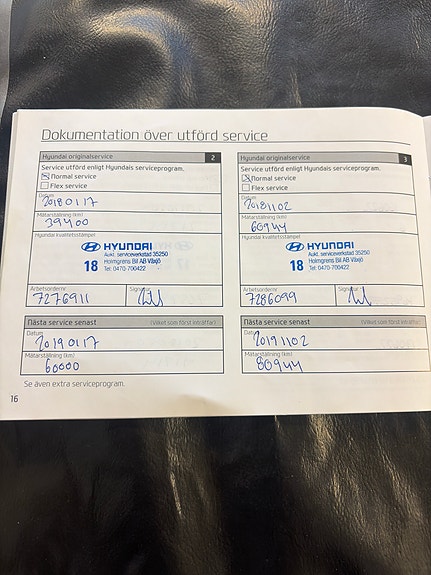 Dokumentation över utförd service
Hyundai originalservice 2
Service utförd enligt Hyundais serviceprogram.
Normal service
Flex service
Datum
20180117
Mätarställning (km)
39400
Hyundai kvalitetsstämpel
HYUNDAI
Aukt. serviceverkstad 35250
18 Holmgrens Bil AB Växjö
Tel: 0470-700422
Arbetsordernr Signatur
7276911
Nästa service senast (Vilket som först inträffar)
Datum
20190117
Mätarställning (km)
60000
Se även extra serviceprogram.
16
Hyundai originalservice 3
Service utförd enligt Hyundais serviceprogram.
Normal service
Flex service
Datum
20181102
Mätarställning (km)
60944
Hyundai kvalitetsstämpel
HYUNDAI
Aukt. serviceverkstad 35250
18 Holmgrens Bil AB Växjö
Tel: 0470-700422
Arbetsordernr Signatur
7286099
Nästa service senast (Vilket som först inträffar)
20191102
Mätarställning (km)
80944